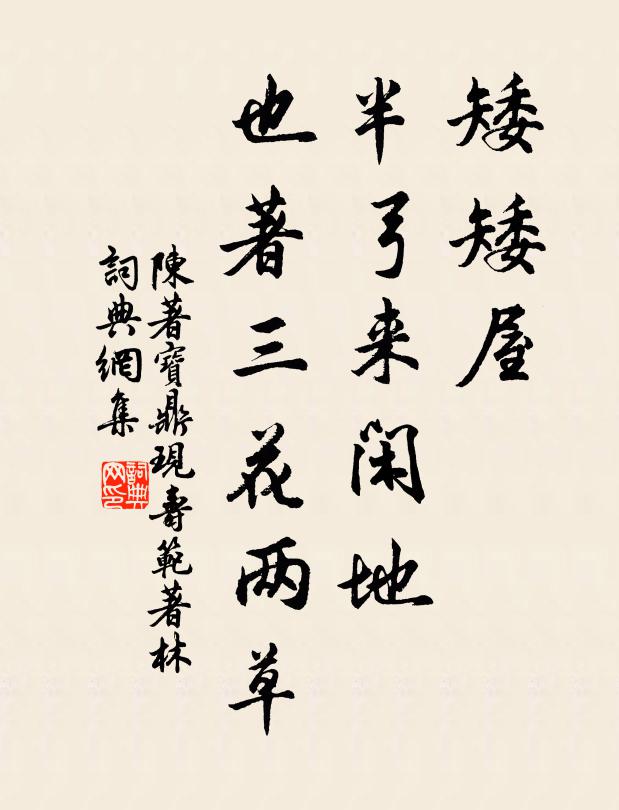 矮矮屋
半弓来閑地
也著三花两草
陳著寶鼎現壽範著林
詞典網集
詞典网印